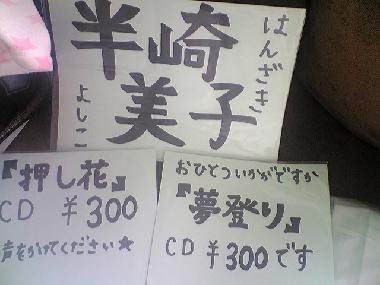 半崎
はんざき
美子
よしこ
『押し花』
CD ¥300
声をかけてください★
おひとついかがですか
『夢登り』
CD ¥300です